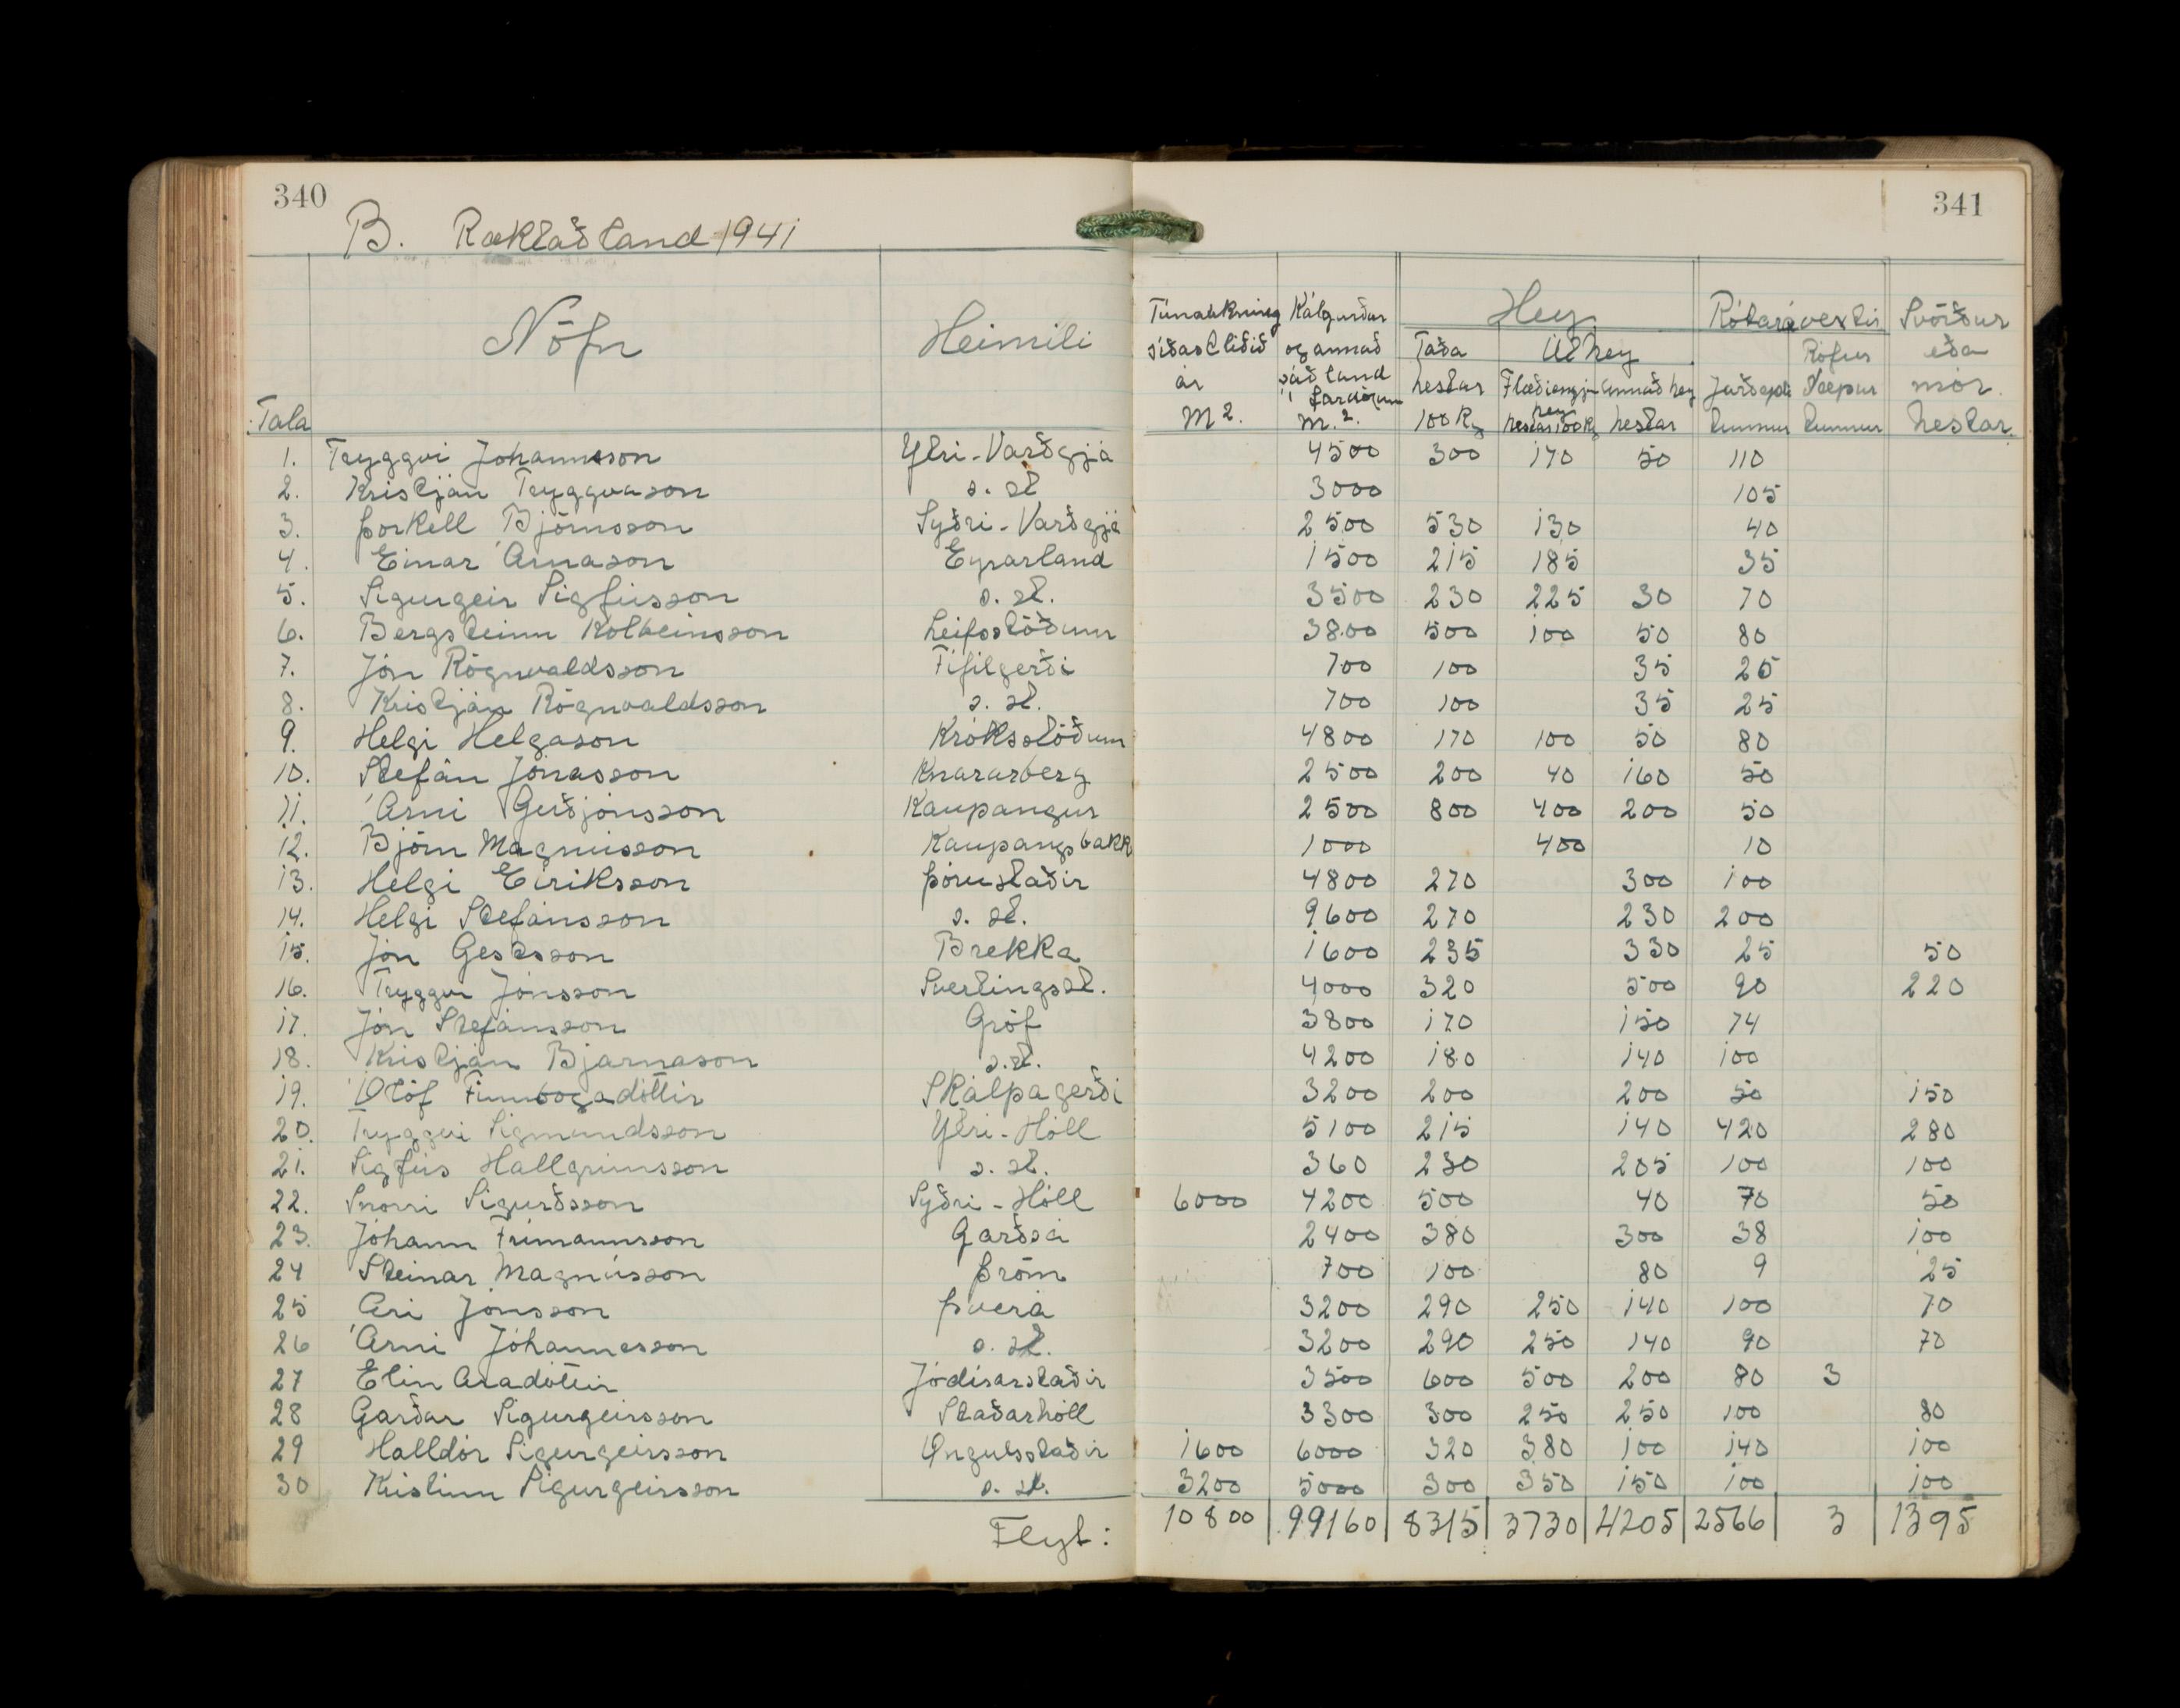 340
341
B. Ræktað land 1941
Tala Nöfn Heimili Túnaukning síðastliðið ár M2. Kálgarðar og annað sáðland í fardögum M.2. Hey Taða hestar 100 Kg Úthey Flæðiengja hey hestar 100 Kg annað hey hestar Rótarávextir Jarðepli tunnur Rófur Næpur tunnur Svörður eða mór hestar
1. Tryggvi Jóhannsson Ytri-Varðgjá 4500 300 170 50 110
2. Kristján Tryggvason s. st 3000 105
3. Þorkell Björnsson Syðri-Varðgjá 2500 530 130 40
4. Einar Árnason Eyrarland 1500 215 185 35
5. Sigurgeir Sigfússon s. st. 3500 230 225 30 70
6. Bergsteinn Kolbeinsson Leifsstöðum 3800 500 100 50 80
7. Jón Rögnvaldsson Fífilgerði 700 100 35 25
8. Kristján Rögnvaldsson s. st. 700 100 35 25
9. Helgi Helgason Króksstöðum 4800 170 100 50 80
10. Stefán Jónasson Knararberg 2500 200 40 160 50
11. Árni Guðjónsson Kaupangur 2500 800 400 200 50
12. Björn Magnússon Kaupangsbakk 1000 400 10
13. Helgi Eiríksson Þórustaðir 4800 270 300 100
14. Helgi Stefánsson s. st. 9600 270 230 200
15. Jón Gestsson Brekka 1600 235 330 25 50
16. Tryggvi Jónsson Svertingsst. 4000 320 500 90 220
17. Jón Stefánsson Gróf 3800 170 150 74
18. Kristján Bjarnason s.st. 4200 180 140 100
19. Ólöf Finnbogadóttir Skálpagerði 3200 200 200 50 150
20. Tryggvi Sigmundsson Ytri-Hóll 5100 215 140 420 280
21. Sigfús Hallgrímsson s. st. 360 230 205 100 100
22. Snorri Sigurðsson Syðri-Hóll 6000 4200 500 40 70 50
23. Jóhann Frímannsson Garðsá 2400 380 300 38 100
24 Steinar Magnússon Þröm 700 100 80 9 25
25 Ari Jónsson Þverá 3200 290 250 140 100 70
26 Árni Jóhannesson s. st. 3200 290 250 140 90 70
27 Elín Aradóttir Jódísarstaðir 3500 600 500 200 80 3
28 Garðar Sigurgeirsson Staðarhóll 3300 300 250 250 100 80
29 Halldór Sigurgeirsson Öngulsstaðir 1600 6000 320 380 100 140 100
30 Kristinn Sigurgeirsson s. st. 3200 5000 300 350 150 100 100
Flyt: 10800 99160 8315 3730 4205 2566 3 1395